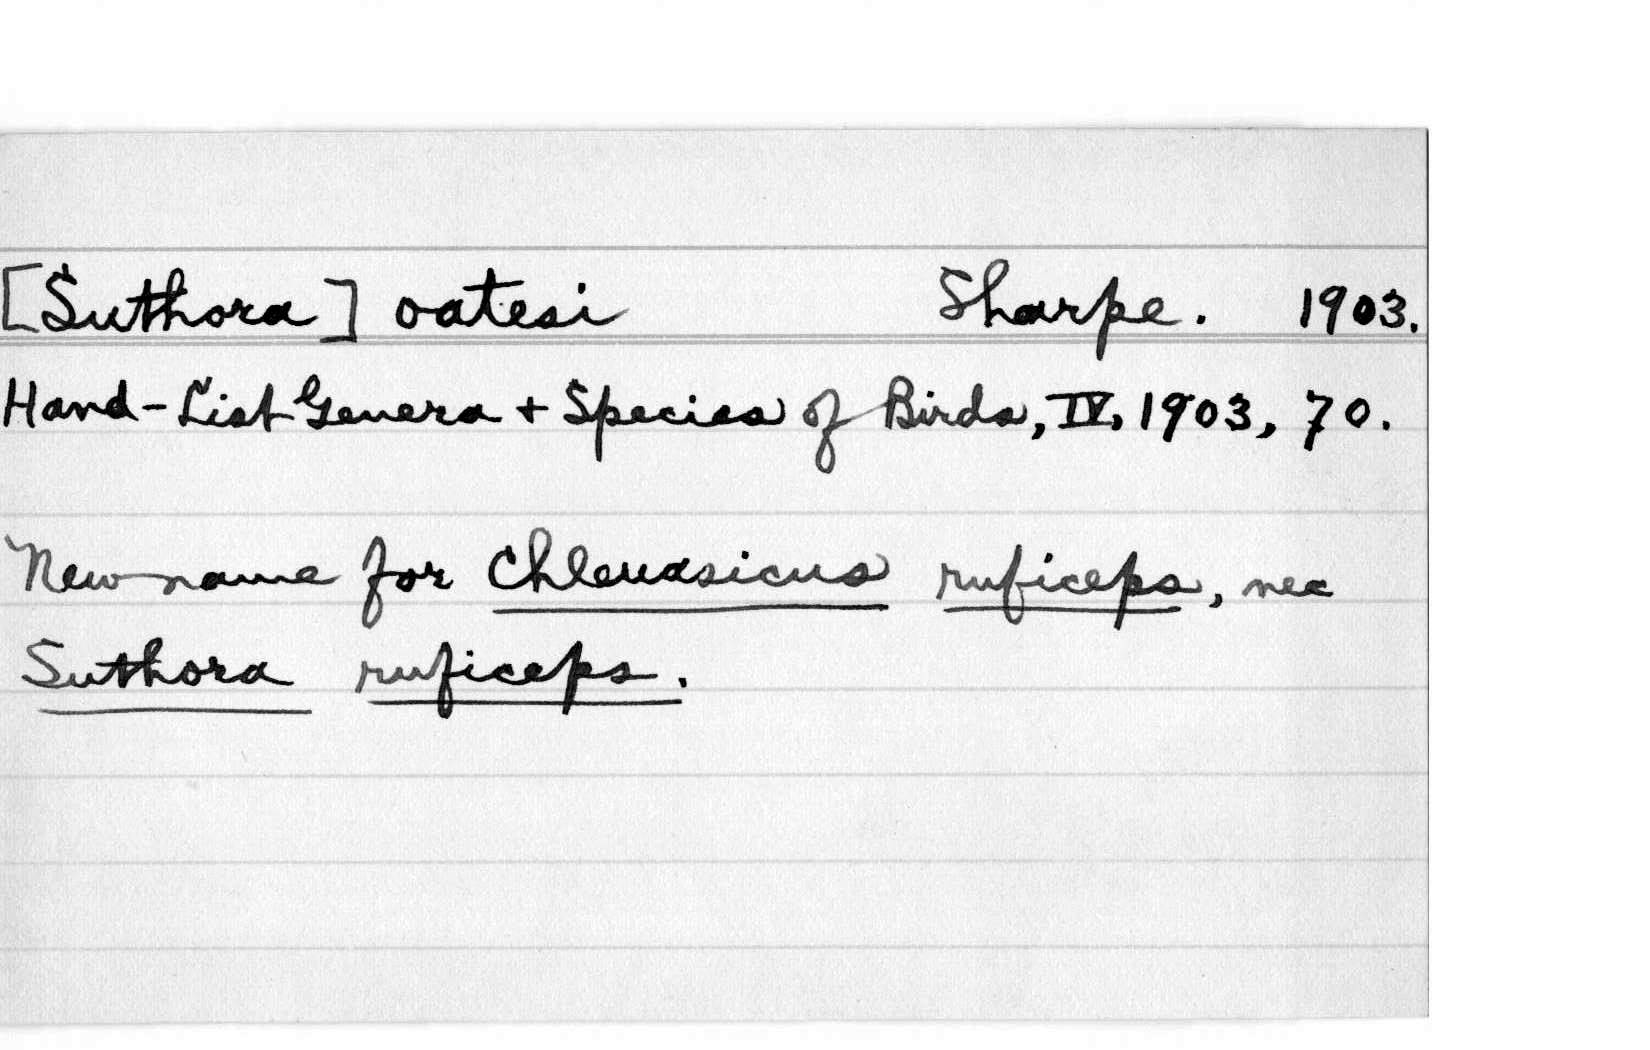 [Suthora] oatesi Sharpe. 1903.
Hand-List Genera + Species of Birds, IV, 1903, 70.
New name for Chleuasicus ruficeps, nec
Suthora ruficeps.